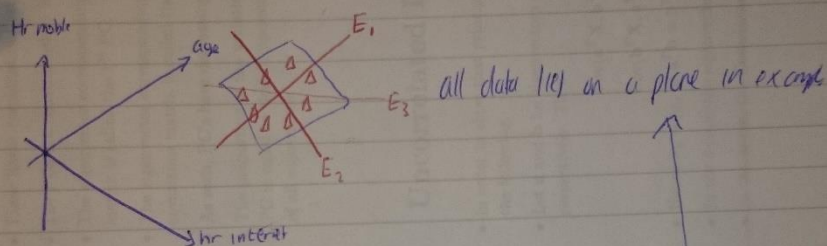 Hr mobile
age
E₁
all data lies on a plane in example
E₃
E₂
hr internet